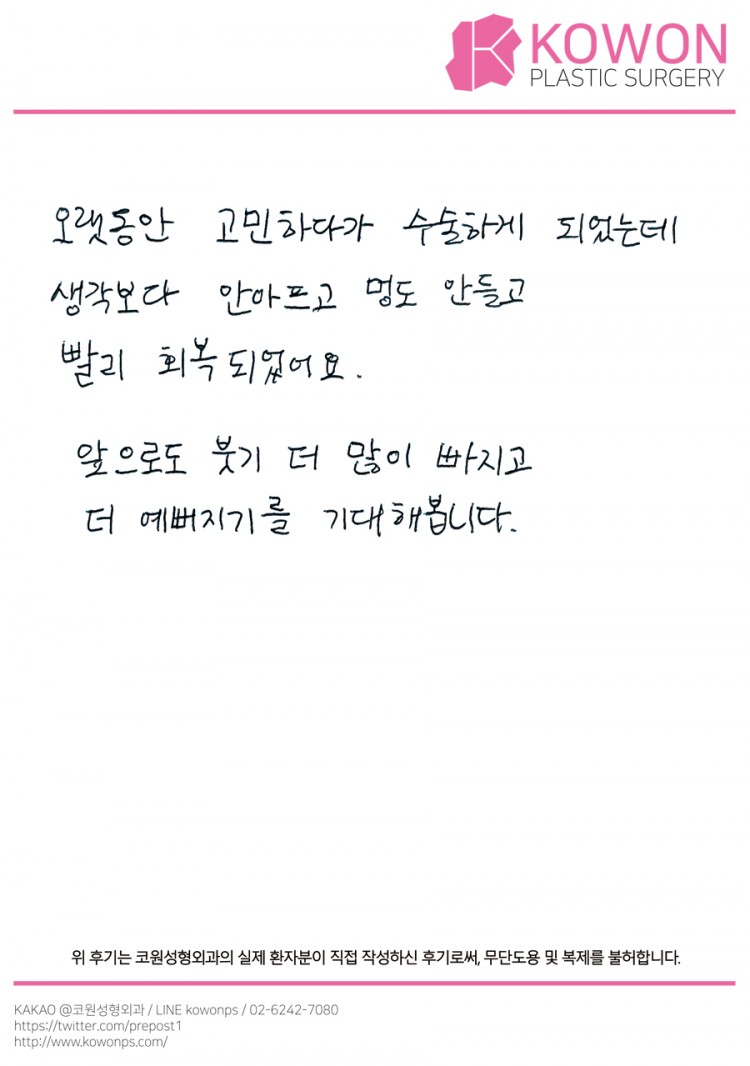 KOWON
PLASTIC SURGERY
오랫동안 고민하다가 수술하게 되었는데
생각보다 안아프고 멍도 안들고
빨리 회복되었어요.
앞으로도 붓기 더 많이 빠지고
더 예뻐지기를 기대해봅니다.
위 후기는 코원성형외과의 실제 환자분이 직접 작성하신 후기로써, 무단도용 및 복제를 불허합니다.
KAKAO @코원성형외과 / LINE kowonps / 02-6242-7080
https://twitter.com/prepost1
http://www.kowonps.com/